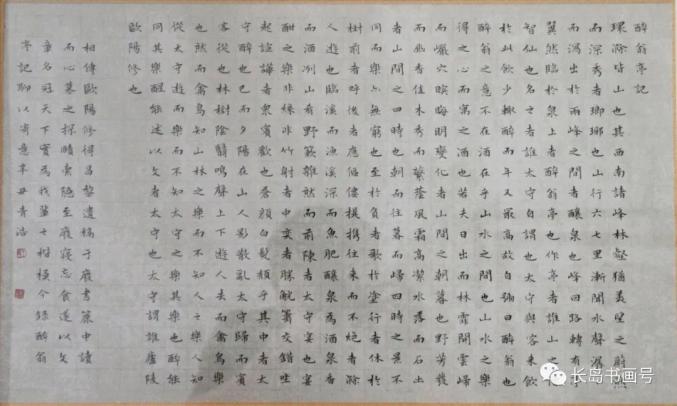 醉翁亭記
環滁皆山也其西南諸峰林壑猶美望之蔚然
而深秀者瑯琊也山行六七里漸聞水聲潺潺
而瀉出於兩峰之間者釀泉也峰回路轉有亭
翼然臨於泉上者醉翁亭也作亭者誰山之僧
智仙也名之者誰太守自謂也太守與客來飲
於此飲少輒醉而年又最高故自號曰醉翁也
醉翁之意不在酒在乎山水之間也山水之樂
得之心而寓之酒也若夫日出而林霏開雲歸
而巖穴暝晦明變化者山間之朝暮也野芳發
而幽香佳木秀而繁蔭風霜高潔水落而石出
者山間之四時也朝而往暮而歸四時之景不
同而樂亦無窮也至於負者歌於塗行者休於
樹前者呼後者應傴僂提攜往來而不絕者滁
人遊也臨溪而漁溪深而魚肥釀泉為酒泉香
而酒洌山肴野蔌雜然而前陳者太守宴也宴
酣之樂非絲非竹射者中奕者勝觥籌交錯坐
起諠譁者眾賓歡也蒼顏白髮頹乎其中者太
守醉也已而夕陽在山人影散亂太守歸而賓
客從也林樹陰翳鳴聲上下遊人去而禽鳥樂
也然而禽鳥知山林之樂而不知人之樂人知
從太守遊而樂而不知太守之樂其樂也醉能
同其樂醒能述以文者太守也太守謂誰廬陵
歐陽修也
相傳歐陽修得昌黎遺稿于廢書簏中讀
而心慕之探賾索隱至廢寢忘食遂以文
章名冠天下實為我輩士楷模今錄醉翁
亭記聊以寄意辛丑青浩
长岛书画号